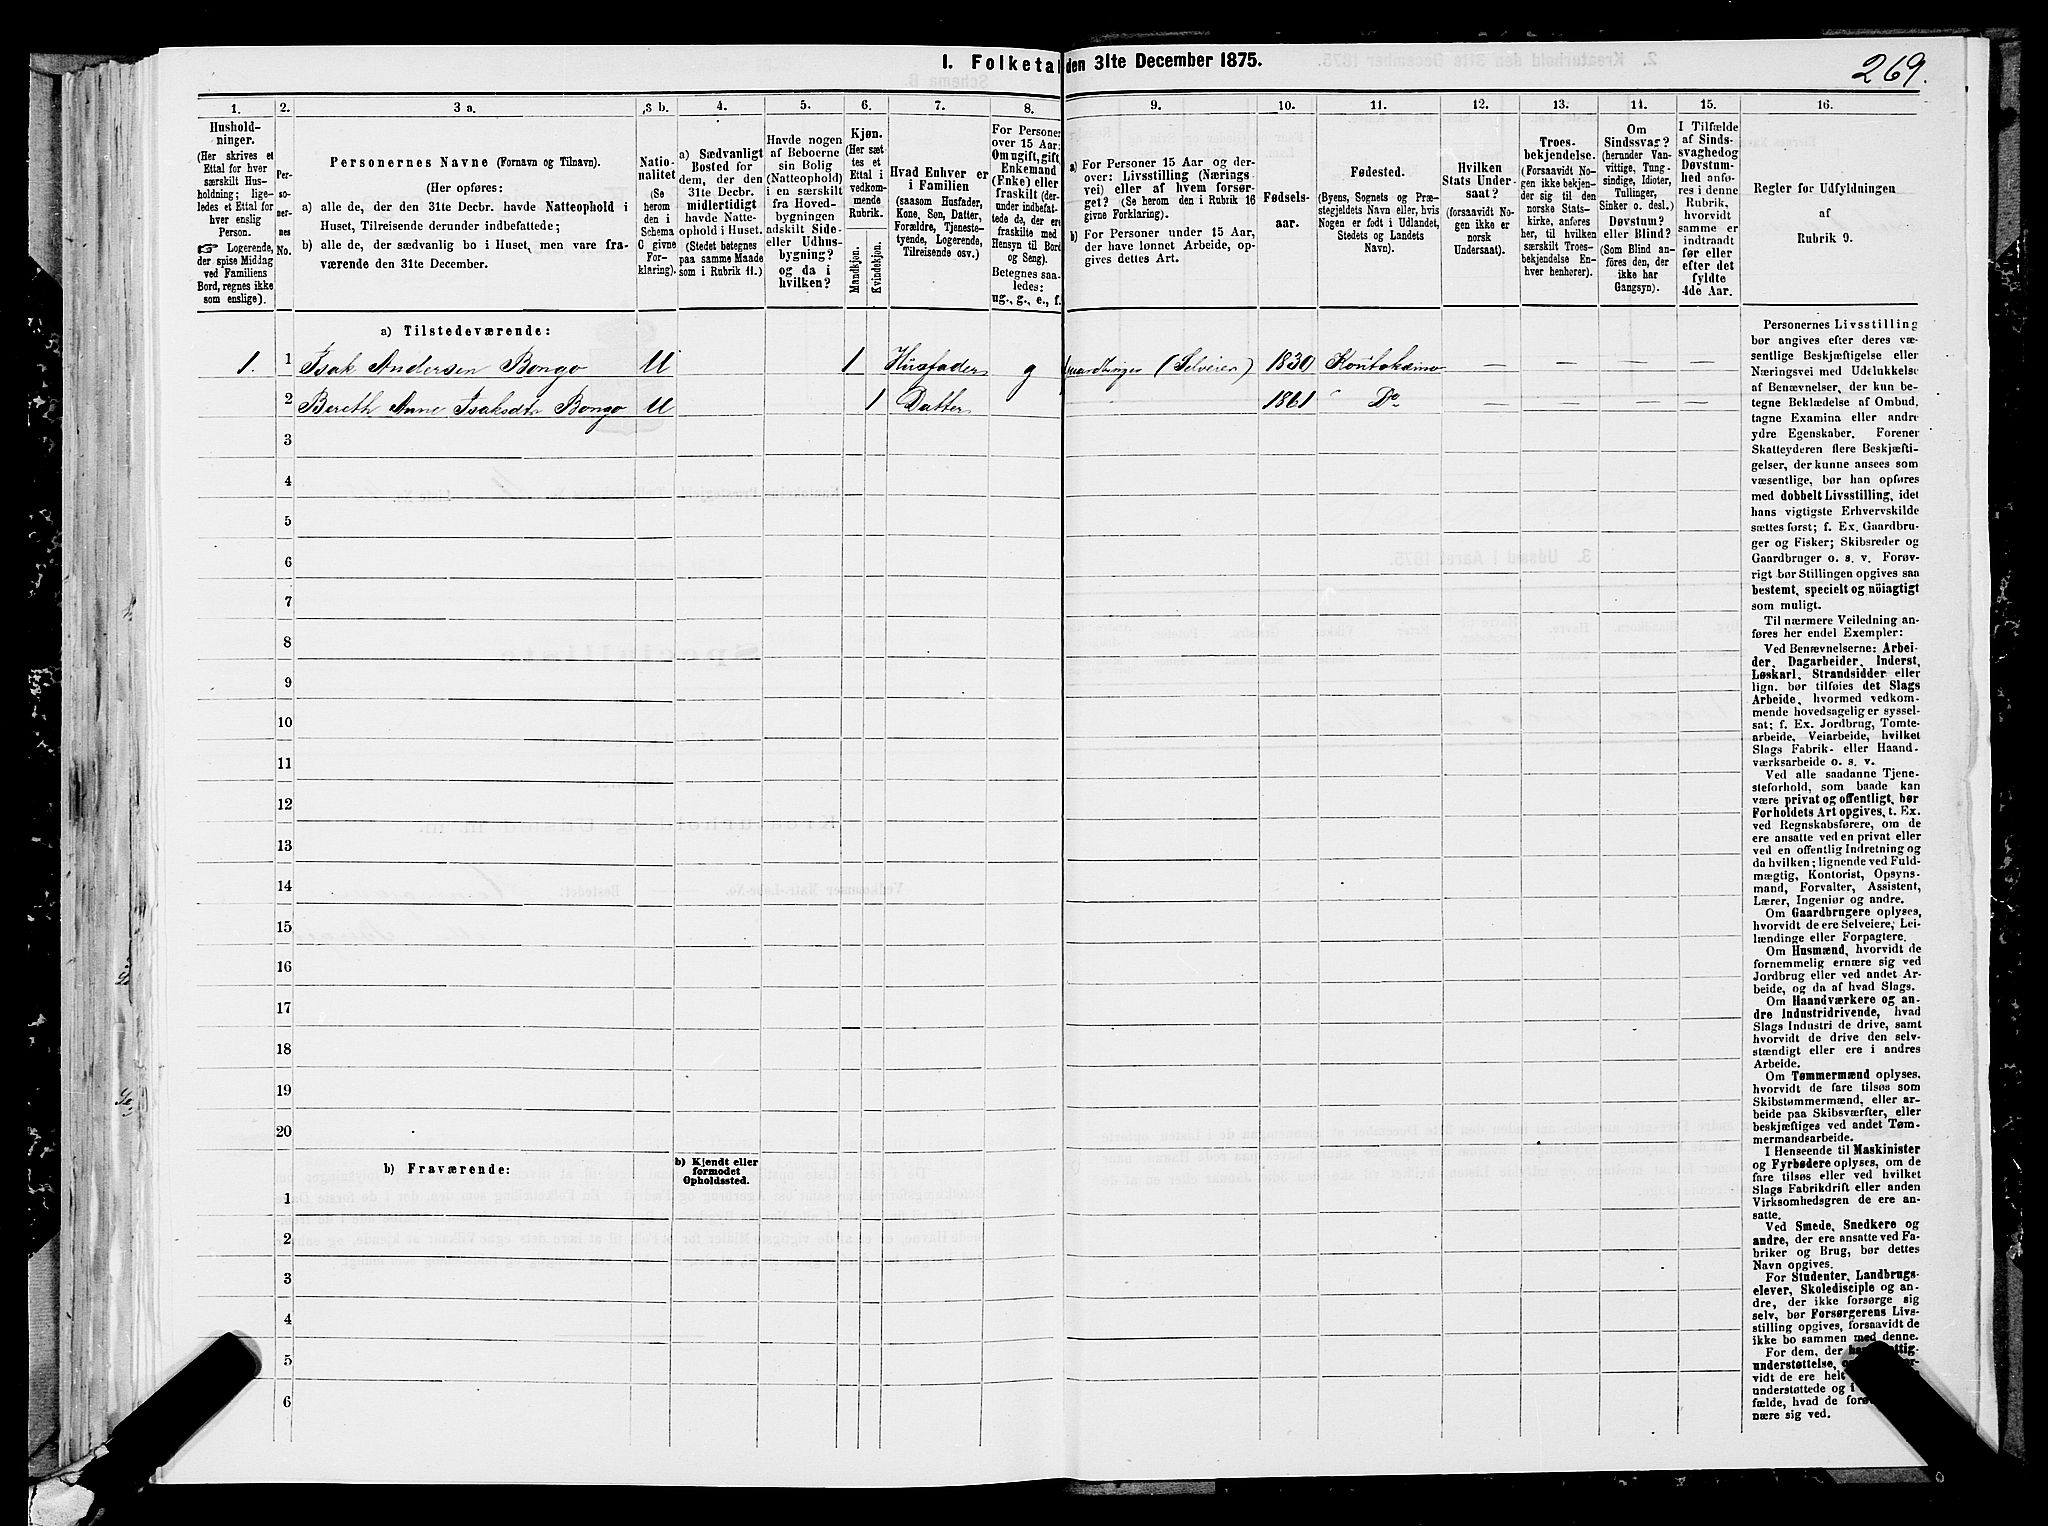 I. Folketal den 31te December 1875.
269.
1. 2. 3 a. 3 b. 4. 5. 6. 7. 8. 9. 10. 11. 12. 13. 14. 15. 16.
Hushold-
ninger.
(Her skrives et
Ettal for hver
særskilt Hus-
holdning; lige-
ledes et Ettal for
hver enslig
Person.
☞ Logerende,
der spise Middag
ved Familiens
Bord, regnes ikke
som enslige).
Per-
so-
ner-
nes
No.
Personernes Navne (Fornavn og Tilnavn).
(Her opføres:
a) alle de, der den 31te Decbr. havde Natteophold i
Huset, Tilreisende derunder indbefattede;
b) alle de, der sædvanlig bo i Huset, men vare fra-
værende den 31te December.
Natio-
nalitet
(Se
herom
den i
Schema
C givne
For-
klaring).
a) Sædvanligt
Bosted for
dem, der den
31te Decbr.
midlertidigt
havde Natte-
ophold i Huset.
(Stedet betegnes
paa samme Maade
som i Rubrik 11.)
Havde nogen
af Beboerne
sin Bolig
(Natteophold)
i en særskilt
fra Hoved-
bygningen
adskilt Side-
eller Udhus-
bygning?
og da i
hvilken?
Kjøn.
(Her sæt-
tes et
Ettal i
vedkom-
mende
Rubrik.
Mandkjøn.
Kvindekjøn.
Hvad Enhver er
i Familien
(saasom Husfader,
Kone, Søn, Datter,
Forældre, Tjeneste-
tyende, Logerende,
Tilreisende osv.)
For Personer
over 15 Aar:
Om ugift, gift,
Enkemand
(Enke) eller
fraskilt (der-
under indbefat-
tede de, der ere
fraskilte med
Hensyn til Bord
og Seng).
Betegnes saa-
ledes:
ug., g., e., f.
a) For Personer 15 Aar og der-
over: Livsstilling (Nærings-
vei) eller af hvem forsør-
get? (Se herom den i Rubrik 16
givne Forklaring).
b) For Personer under 15 Aar,
der have lønnet Arbeide, op-
gives dettes Art.
Fødsels-
aar.
Fødested.
(Byens, Sognets og Præ-
stegjeldets Navn eller, hvis
Nogen er født i Udlandet,
Stedets og Landets
Navn).
Hvilken
Stats Under-
saat?
(forsaavidt No-
gen ikke er
norsk
Undersaat).
Troes-
bekjendelse.
(Forsaavidt No-
gen ikke bekjen-
der sig til den
norske Stats-
kirke, anføres
her, til hvilken
særskilt Troes-
bekjendelse En-
hver henhører).
Om
Sindssvag?
(herunder Van-
vittige, Tung-
sindige, Idioter,
Tullinger,
Sinker o. desl.)
Døvstum?
eller Blind?
(Som Blind an-
føres den, der
ikke har
Gangsyn).
I Tilfælde
af Sinds-
svaghed og
Døvstum-
hed anfø-
res i denne
Rubrik,
hvorvidt
samme er
indtraadt
før eller
efter det
fyldte
4de Aar.
Regler for Udfyldningen
af
Rubrik 9.
a) Tilstedeværende:
1. 1 Isak Andersen Bongo U 1 Husfader g Gaardbruger (Selveier) 1830 Koutokeino — — — —
2 Bereth Anne Isaksdtr Bongo U 1 Datter 1861 Do — — — —
3
4
5
6
7
8
9
10
11
12
13
14
15
16
17
18
19
20
b) Fraværende:
b) Kjendt eller
formodet
Opholdssted.
1
2
3
4
5
6
Personernes Livsstilling
bør angives efter deres væ-
sentlige Beskjæftigelse eller
Næringsvei med Udelukkelse
af Benævnelser, der kun be-
tegne Beklædelse af Ombud,
tagne Examina eller andre
ydre Egenskaber. Forener
Skatteyderen flere Beskjæfti-
gelser, der kunne ansees som
væsentlige, bør han opføres
med dobbelt Livsstilling, idet
hans vigtigste Erhvervskilde
sættes først; f. Ex. Gaardbru-
ger og Fisker; Skibsreder og
Gaardbruger o. s. v. Forøv-
rigt bør Stillingen opgives saa
bestemt, specielt og nöiagtigt
som muligt.
Til nærmere Veiledning an-
føres her endel Exempler:
Ved Benævnelserne: Arbei-
der, Dagarbeider, Inderst,
Løskarl, Strandsidder eller
lign. bør tilføies det Slags
Arbeide, hvormed vedkom-
mende hovedsagelig er syssel-
sat; f. Ex. Jordbrug, Tomte-
arbeide, Veiarbeide, hvilket
Slags Fabrik- eller Haand-
værksarbeide o. s. v.
Ved alle saadanne Tjene-
steforhold, som baade kan
være privat og offentligt, bør
Forholdets Art opgives, t. Ex.
ved Regnskabsførere, om de
ere ansatte ved en privat eller
ved en offentlig Indretning og
da hvilken; lignende ved Fuld-
mægtig, Kontorist, Opsyns-
mand, Forvalter, Assistent,
Lærer, Ingeniør og andre.
Om Gaardbrugere oplyses,
hvorvidt de ere Selveiere, Lei-
lændinge eller Forpagtere.
Om Husmænd, hvorvidt de
fornemmelig ernære sig ved
Jordbrug eller ved andet Ar-
beide, og da af hvad Slags.
Om Haandværkere og an-
dre Industridrivende, hvad
Slags Industri de drive, samt
hvorvidt de drive den selv-
stændigt eller ere i andres
Arbeide.
Om Tømmermænd oplyses,
hvorvidt de fare tilsøs som
Skibstømmermænd, eller ar-
beide paa Skibsværfter, eller
beskjæftiges ved andet Tøm-
mermandsarbeide.
I Henseende til Maskinister
og Fyrbødere oplyses, om de
fare tilsøs eller ved hvilket
Slags Fabrikdrift eller anden
Virksomhedsgren de ere an-
satte.
Ved Smede, Snedkere og
andre, der ere ansatte ved Fa-
briker og Brug, bør dettes
Navn opgives.
For Studenter, Landbrugs-
elever, Skoledisciple og an-
dre, der ikke forsørge sig
selv, bør Forsørgerens Livs-
stilling opgives, forsaavidt de
ikke bo sammen med denne.
For dem, der
understøttelse,
vidt de ere helt
understøttede og i
fælde, hvad de
nære sig ved.